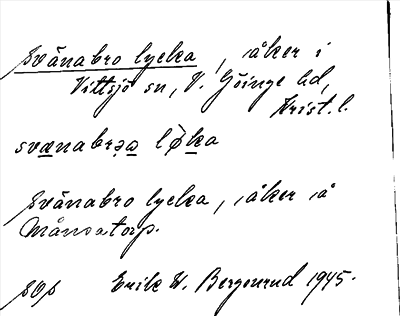 Svänabro lycka, åker i
Vittsjö sn, V. Göinge hd,
Krist. l.
svænabrǝa løka
Svänabro lycka, åker å
Månsatorp.
Erik W. Bergonrud 1945.